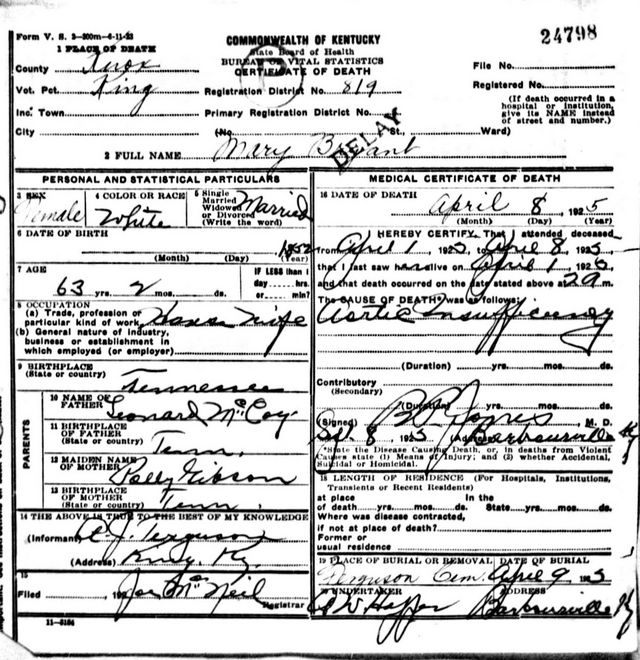 Form V. S. 2-300m-6-11-23
24798
COMMONWEALTH OF KENTUCKY
State Board of Health
BUREAU OF VITAL STATISTICS
CERTIFICATE OF DEATH
1 PLACE OF DEATH
County Knox
Vot. Pct. King
Inc. Town
City
File No.
Registration District No. 819
Registered No.
Primary Registration District No.
(No. St., Ward)
(If death occurred in a hospital or institution, give its NAME instead of street and number.)
DELAY
2 FULL NAME Mary Bryant
PERSONAL AND STATISTICAL PARTICULARS
3 SEX Female
4 COLOR OR RACE White
5 Single Married Widowed or Divorced (Write the word) Married
6 DATE OF BIRTH
1852
(Month) (Day) (Year)
7 AGE
63 yrs. 2 mos. ds.
IF LESS than 1 day ... hrs. or ... min?
8 OCCUPATION
(a) Trade, profession or particular kind of work House Wife
(b) General nature of industry, business or establishment in which employed (or employer)
9 BIRTHPLACE
(State or country) Tennessee
PARENTS
10 NAME OF FATHER Leonard McCoy
11 BIRTHPLACE OF FATHER
(State or country) Tenn.
12 MAIDEN NAME OF MOTHER Polly Gibson
13 BIRTHPLACE OF MOTHER
(State or country) Tenn.
14 THE ABOVE IS TRUE TO THE BEST OF MY KNOWLEDGE
(Informant) Ferguson
(Address) King, Ky.
15
Filed 192 Joe McNeil
Registrar
11-3184
MEDICAL CERTIFICATE OF DEATH
16 DATE OF DEATH
April 8, 1925
(Month) (Day) (Year)
I HEREBY CERTIFY, That I attended deceased
from April 1 1925, to April 8 1925,
that I last saw h alive on April 1 1925
and that death occurred on the date stated above at 2 a m.
The CAUSE OF DEATH* was as follows:
Aortic Insufficiency
(Duration) yrs. mos. ds.
Contributory
(Secondary)
(Duration) yrs. mos. ds.
(Signed) Jones M. D.
8 1925 (Address) Barbourville Ky
*State the Disease Causing Death, or, in deaths from Violent Causes state (1) Means of Injury; and (2) whether Accidental, Suicidal or Homicidal.
18 LENGTH OF RESIDENCE (For Hospitals, Institutions, Transients or Recent Residents)
At place of death yrs. mos. ds. In the State yrs. mos. ds.
Where was disease contracted, if not at place of death?
Former or usual residence
19 PLACE OF BURIAL OR REMOVAL DATE OF BURIAL
Ferguson Cem. April 9 1925
20 UNDERTAKER ADDRESS
Barbourville Ky